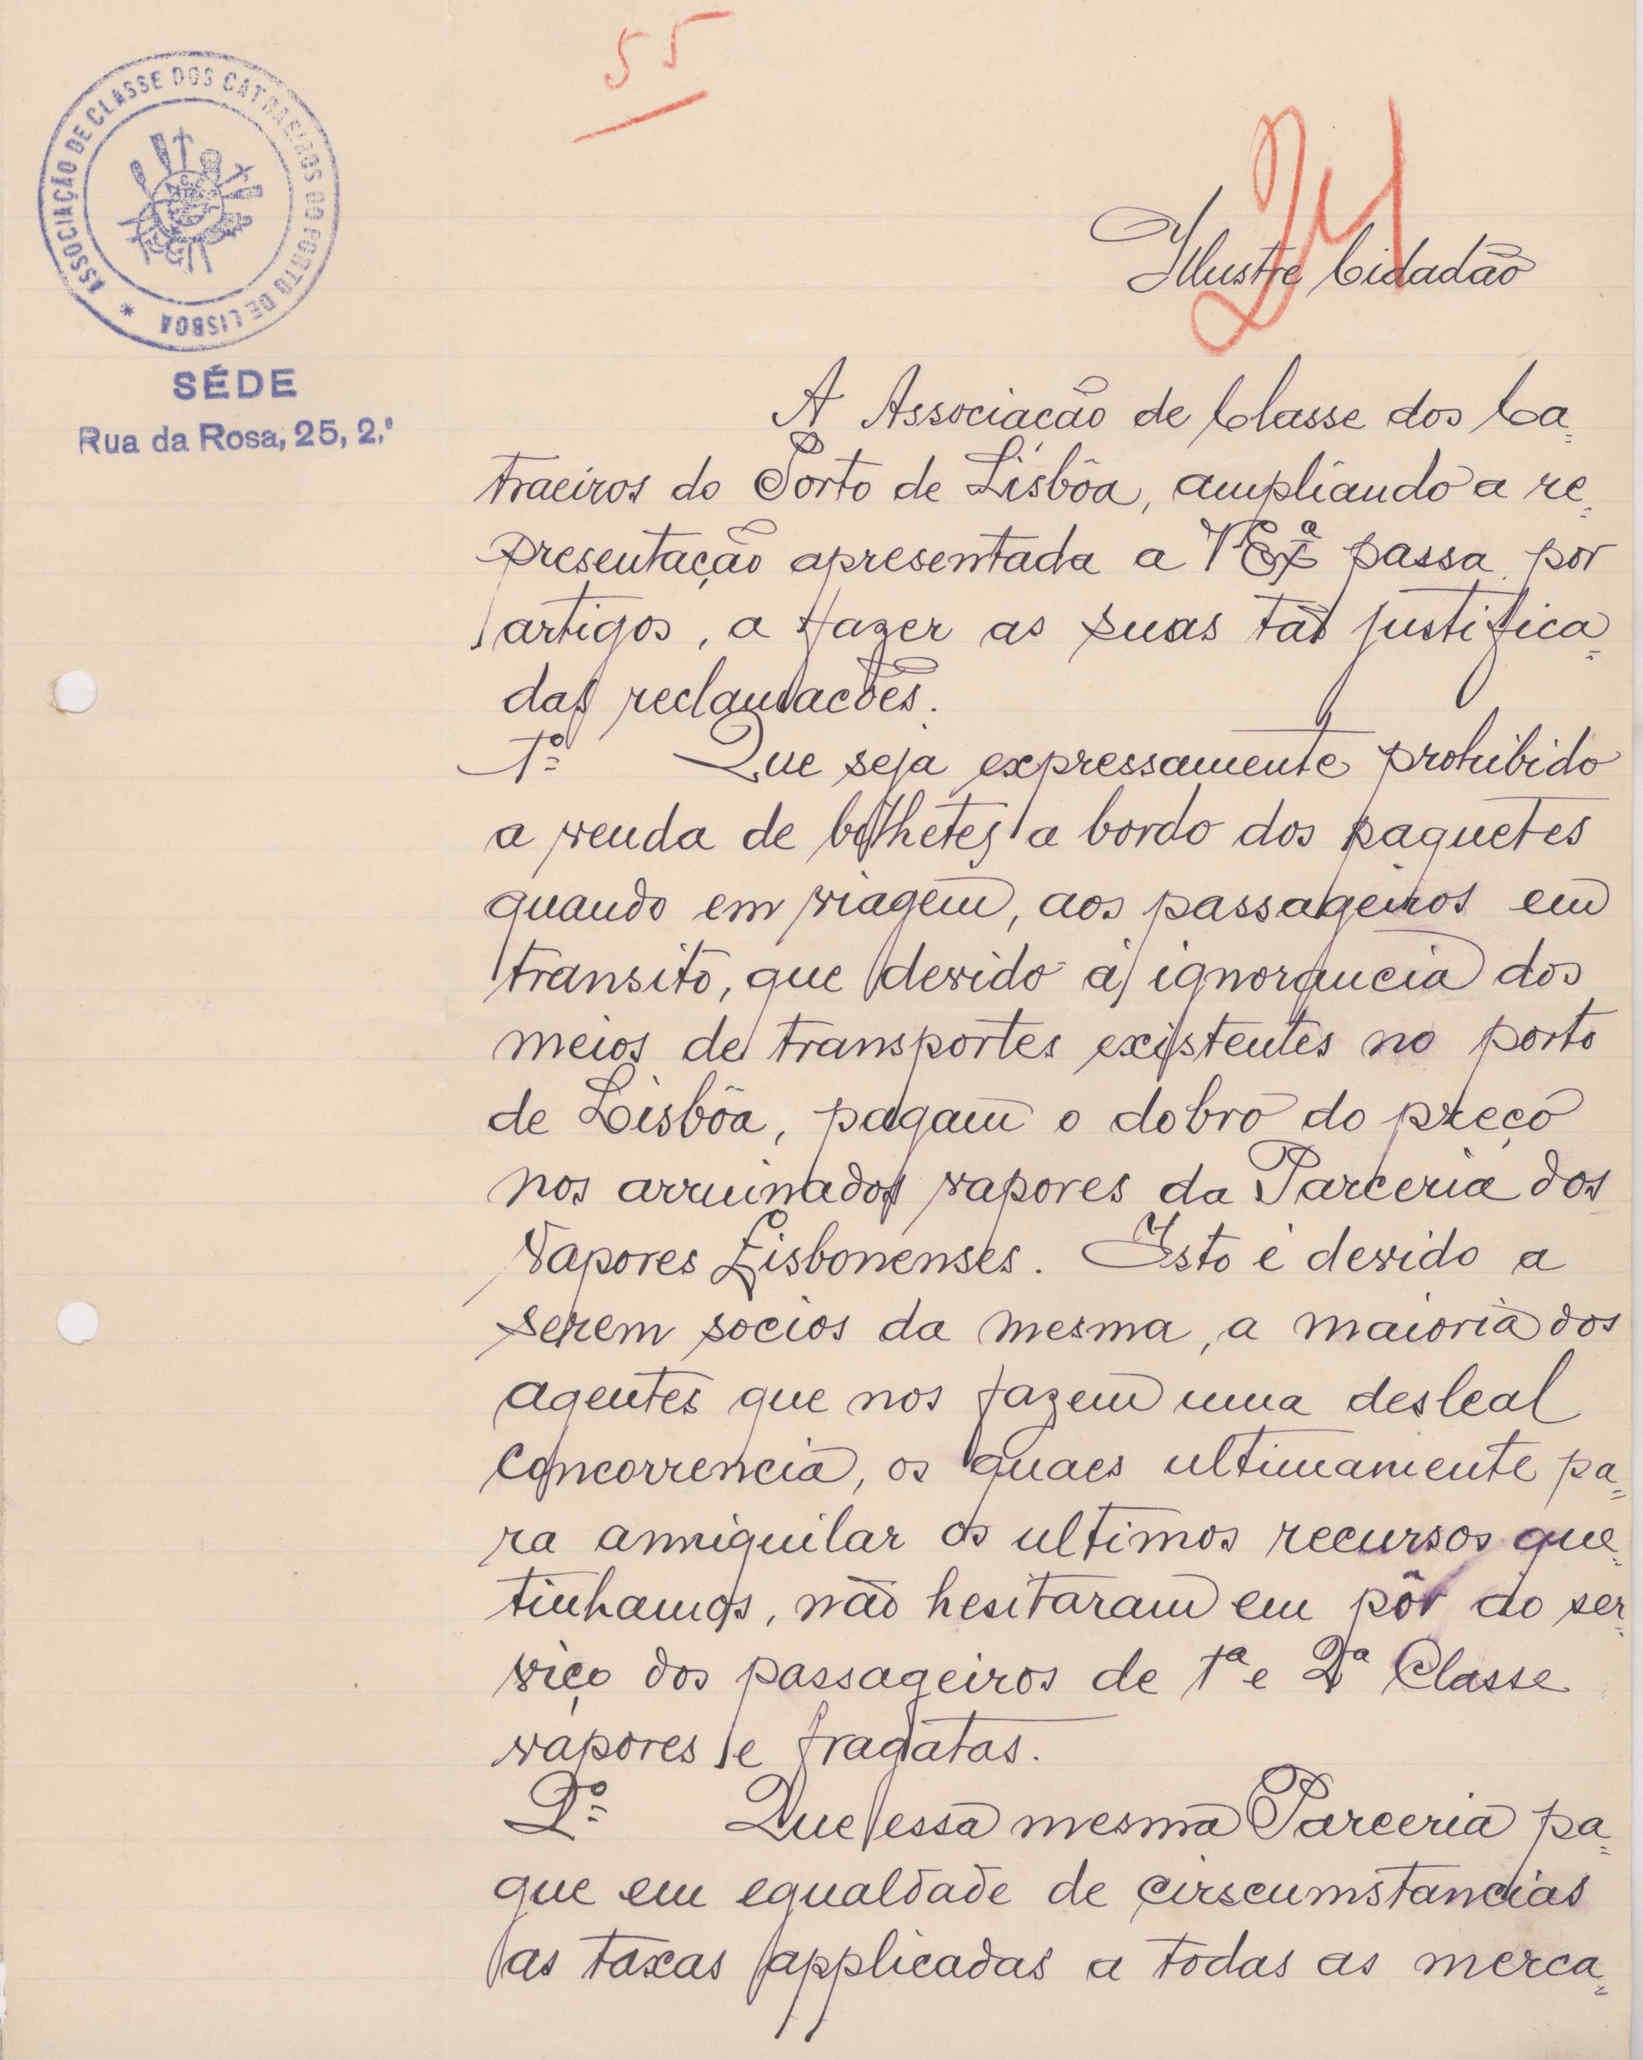 55
JM
ASSOCIAÇÃO DE CLASSE DOS CATRAEIROS DO PORTO DE LISBOA *
SÉDE
Rua da Rosa, 25, 2.º
Illustre Cidadão
A Associacão de Classe dos Ca=
traeiros do Porto de Lisbôa, ampliando a re=
presentação apresentada a V Exª passa por
artigos, a fazer as suas tão justifica=
das reclamacões.
1º Que seja expressamente prohibido
a venda de bilhetes a bordo dos paquetes
quando em viagem, aos passageiros em
transito, que devido á ignorancia dos
meios de transportes existentes no porto
de Lisbôa, pagam o dobro do preço
nos arruinados vapores da Parceria dos
Vapores Lisbonenses. Isto é devido a
serem socios da mesma, a maioria dos
agentes que nos fazem uma desleal
concorrencia, os quaes ultimamente pa=
ra anniquilar os ultimos recursos que=
tinhamos, não hesitaram em pôr ao ser=
viço dos passageiros de 1ª e 2ª Classe
vapores e fragatas.
2º Que essa mesma Parceria pa=
gue em egualdade de cirscumstancias
as taxas applicadas a todas as merca=